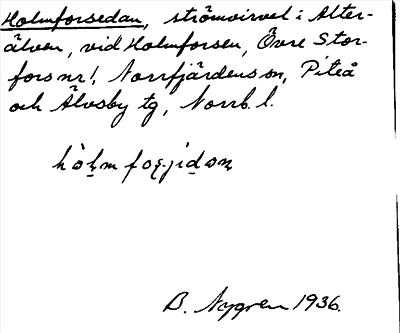 Holmforsedan, strömvirvel i Alter-
älven, vid Holmforsen, Övre Stor-
fors nr 1, Norrfjärdens sn, Piteå
och Älvsby tg, Norrb. l.
B. Nygren 1936.